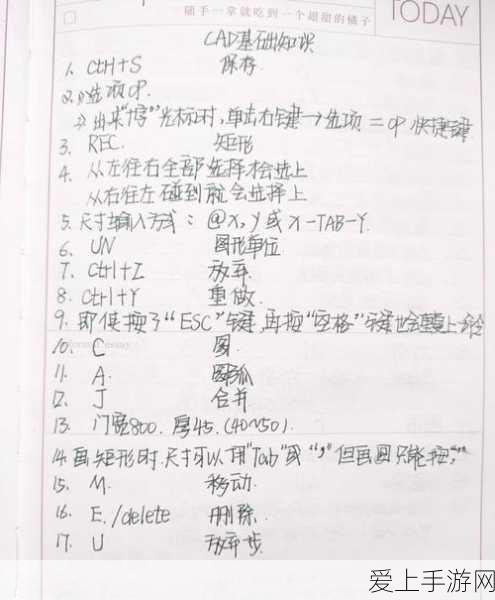 随手一拿就吃到一个超甜的橘子
TODAY
CAD基础知识
1. Ctrl+S 保存.
2. 选项 OP.
→ 出来"十字"光标时,单击右键→选项 = OP 快捷键
3. REC. 矩形
4. 从左往右全部选择才会选上
从右往左碰到就会选择上
5. 尺寸输入方式: @x,y 或 x-TAB-Y.
6. UN 图形单位.
7. Ctrl+Z 放弃.
8. Ctrl+Y 重做.
9. 即使按了"ESC"键,再按"空格"键也会重复上一命令
10. C 圆.
11. A. 圆弧
12. J 合并
13. 门宽800. 厚45. (40~50).
14. 画矩形时,尺寸可以用"Tab"或","但画圆只能按","
15. M. 移动.
16. E./delete 删除.
17. U 放弃一步.
爱上手游网